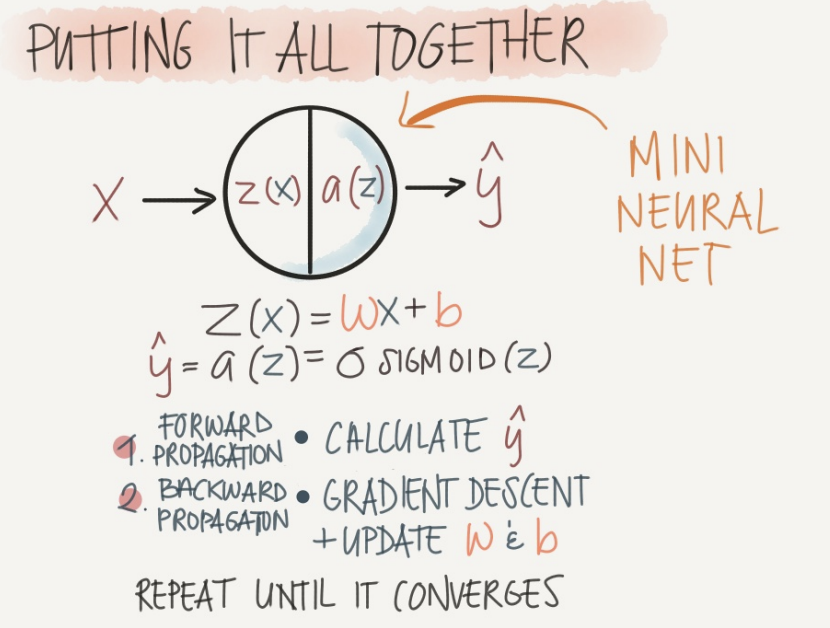 PUTTING IT ALL TOGETHER
X → z(x) | a(z) → ŷ
MINI
NEURAL
NET
Z(x) = Wx + b
ŷ = a(z) = σ SIGMOID(z)
1. FORWARD
PROPAGATION • CALCULATE ŷ
2. BACKWARD
PROPAGATON • GRADIENT DESCENT
+ UPDATE W & b
REPEAT UNTIL IT CONVERGES